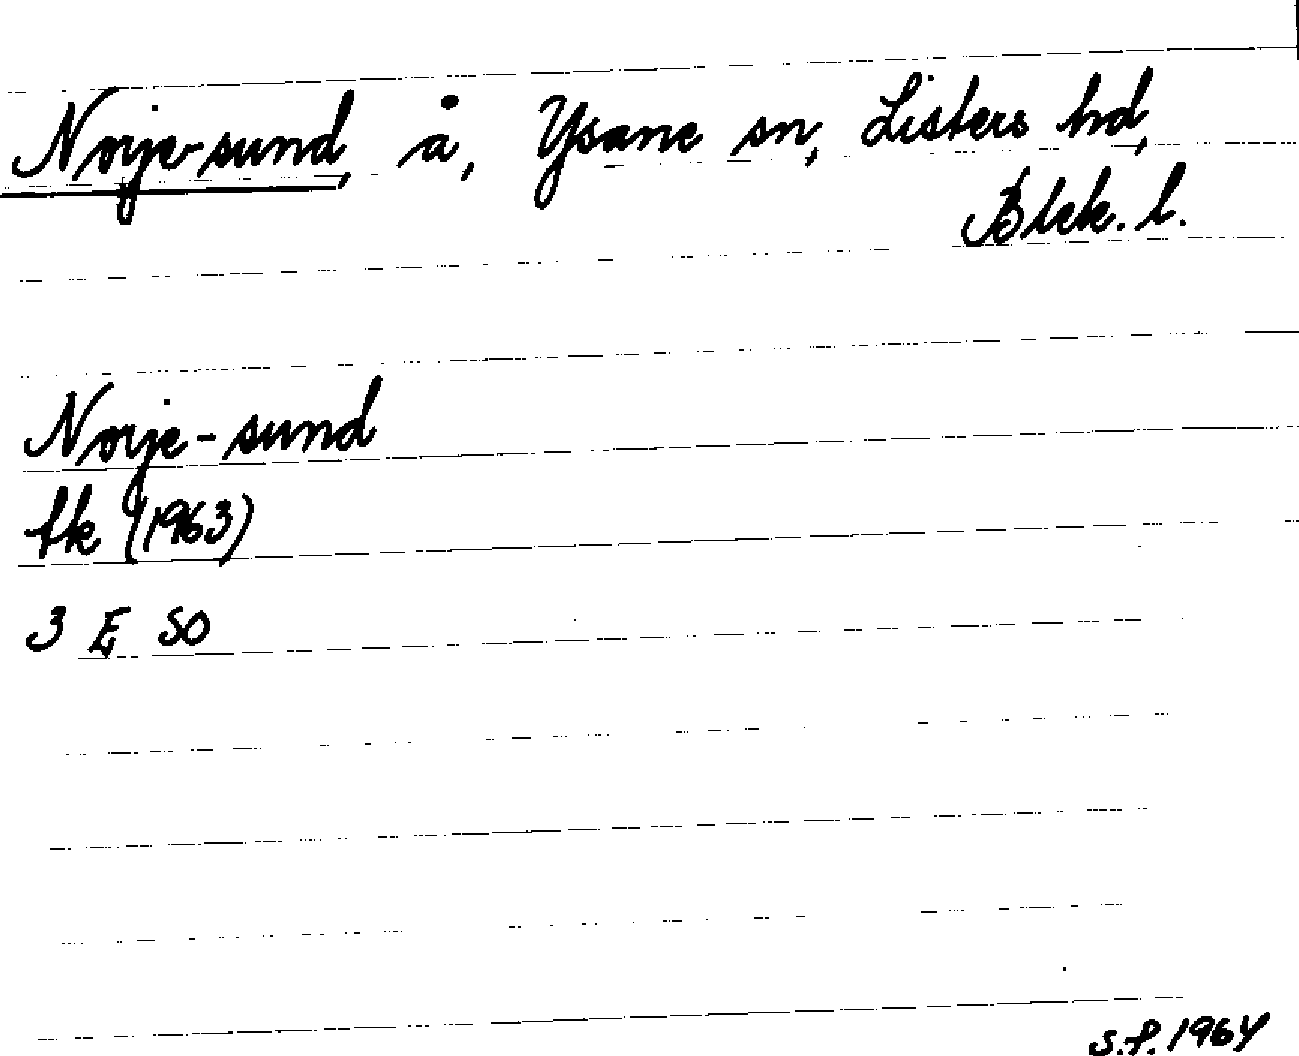 Norje-sund, å, Ysane sn, Listers hd,
Blek. l.
Norje-sund
fk (1963)
3 E SO
S.F. 1964